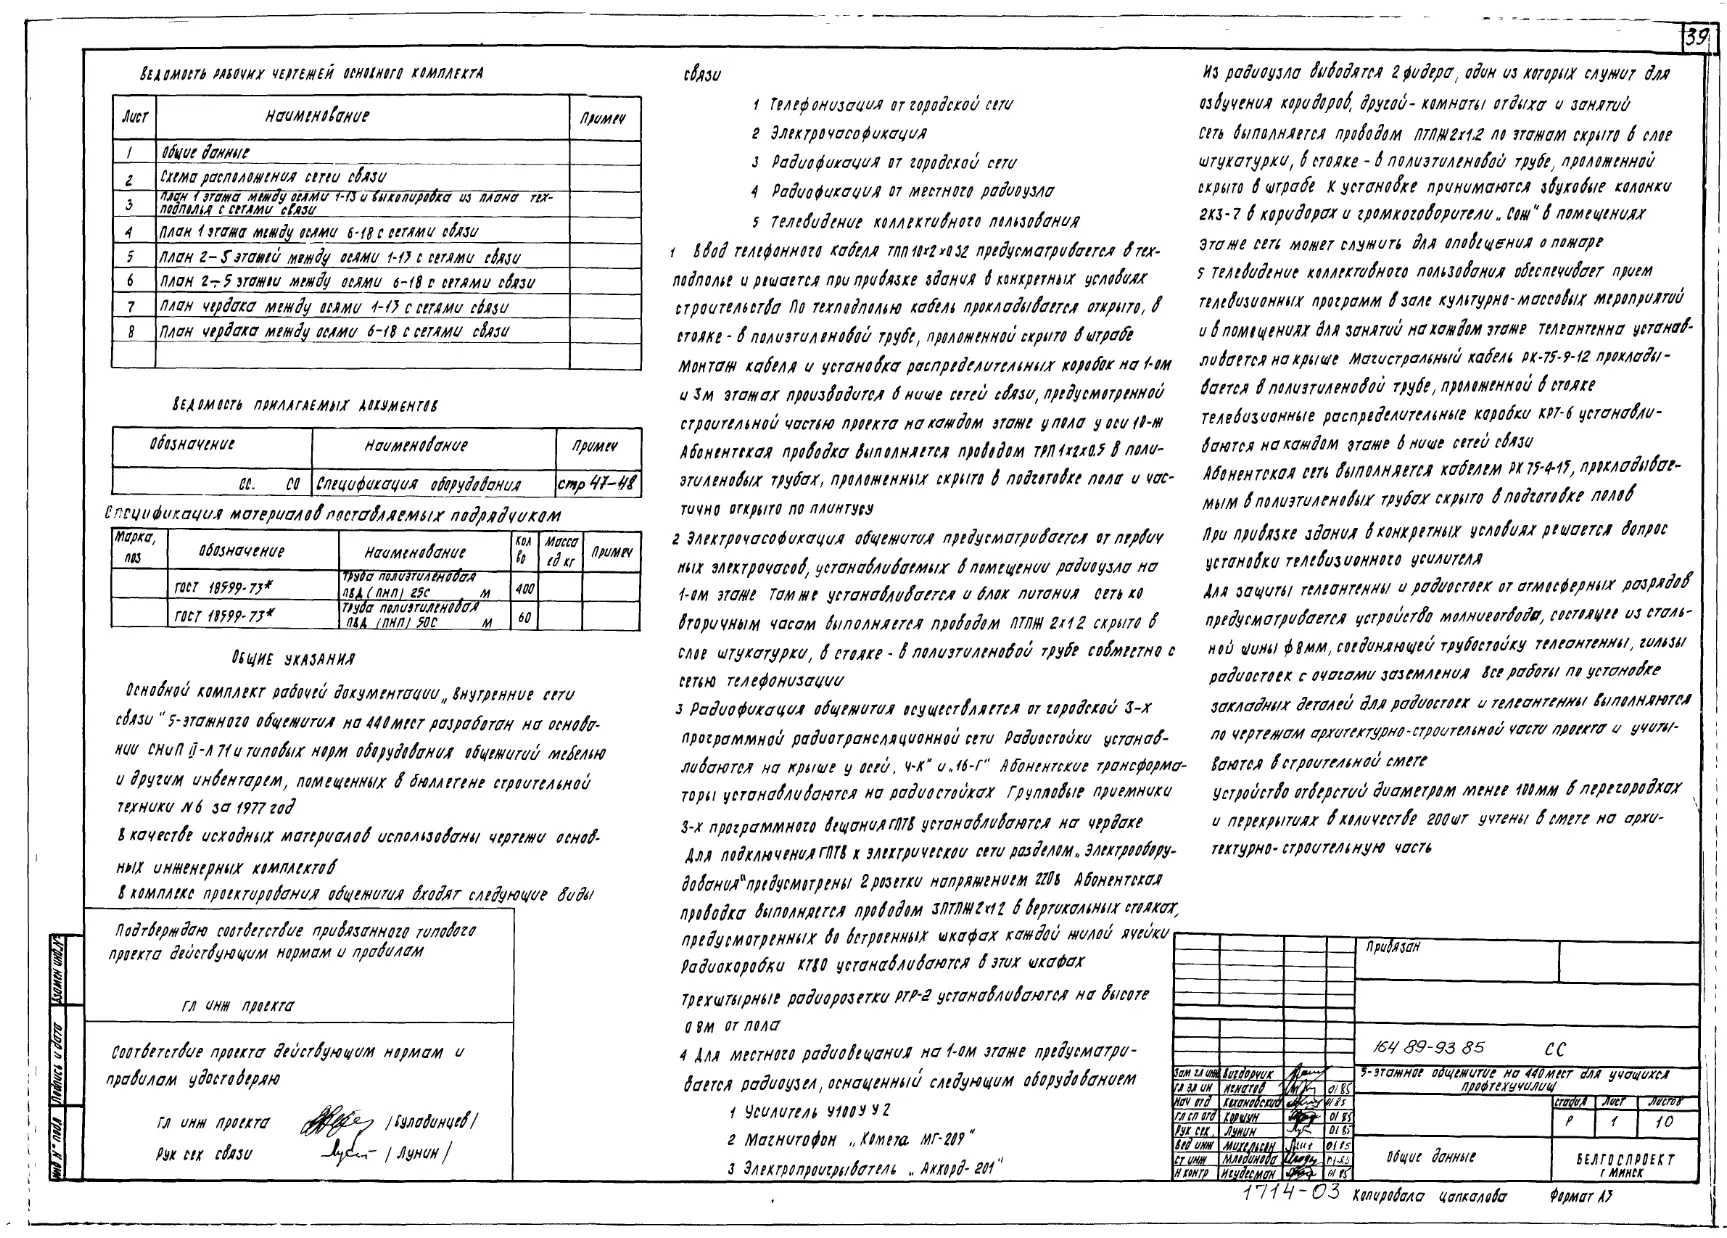 39
Ведомость рабочих чертежей основного комплекта
Лист Наименование Примеч
1 Общие данные
2 Схема расположения сетей связи
3 План 1 этажа между осями 1-13 и выкопировка из плана тех-
подполья с сетями связи
4 План 1 этажа между осями 6-18 с сетями связи
5 План 2-5 этажей между осями 1-13 с сетями связи
6 План 2-5 этажей между осями 6-18 с сетями связи
7 План чердака между осями 1-13 с сетями связи
8 План чердака между осями 6-18 с сетями связи
Ведомость прилагаемых документов
Обозначение Наименование Примеч
СС. СО Спецификация оборудования стр 47-48
Спецификация материалов поставляемых подрядчиком
Марка, поз Обозначение Наименование Кол во Масса ед кг Примеч
ГОСТ 18599-73* Труба полиэтиленовая ПВД (ПНП) 25С м 400
ГОСТ 18599-73* Труба полиэтиленовая ПВД (ПНП) 50С м 60
Общие указания
Основной комплект рабочей документации „Внутренние сети
связи" 5-этажного общежития на 440 мест разработан на основа-
нии СНиП II-Л 71 и типовых норм оборудования общежитий мебелью
и другим инвентарем, помещенных в бюллетене строительной
техники №6 за 1977 год
В качестве исходных материалов использованы чертежи основ-
ных инженерных комплектов
В комплекс проектирования общежития входят следующие виды
Подтверждаю соответствие привязанного типового
проекта действующим нормам и правилам
гл инж проекта
Соответствие проекта действующим нормам и
правилам удостоверяю
гл инж проекта /Буладинцев/
рук сек связи /Лунин/
Взамен инв.№
Подпись и дата
Инв № подл
связи
1 Телефонизация от городской сети
2 Электрочасофикация
3 Радиофикация от городской сети
4 Радиофикация от местного радиоузла
5 Телевидение коллективного пользования
1 Ввод телефонного кабеля ТПП 10х2х0.32 предусматривается в тех-
подполье и решается при привязке здания в конкретных условиях
строительства По техподполью кабель прокладывается открыто, в
стояке - в полиэтиленовой трубе, проложенной скрыто в штрабе
Монтаж кабеля и установка распределительных коробок на 1-ом
и 3м этажах производится в нише сетей связи, предусмотренной
строительной частью проекта на каждом этаже у пола у оси 10-ж
Абонентская проводка выполняется проводом ТРП 1х2х0.5 в поли-
этиленовых трубах, проложенных скрыто в подготовке пола и час-
тично открыто по плинтусу
2 Электрочасофикация общежития предусматривается от первич
ных электрочасов, устанавливаемых в помещении радиоузла на
1-ом этаже Там же устанавливается и блок питания сеть ко
вторичным часам выполняется проводом ПТПЖ 2х1 2 скрыто в
слое штукатурки, в стояке - в полиэтиленовой трубе совместно с
сетью телефонизации
3 Радиофикация общежития осуществляется от городской 3-х
программной радиотрансляционной сети Радиостойки устанав-
ливаются на крыше у осей „4-К" и „16-Г" Абонентские трансформа-
торы устанавливаются на радиостойках Групповые приемники
3-х программного вещания ГПТВ устанавливаются на чердаке
Для подключения ГПТВ к электрической сети разделом „Электрообору-
дования" предусмотрены 2 розетки напряжением 220в Абонентская
проводка выполняется проводом ЗПТПЖ 2х1 2 в вертикальных стояках,
предусмотренных во встроенных шкафах каждой жилой ячейки
Радиокоробки КТВО устанавливаются в этих шкафах
Трехштырные радиорозетки РТР-2 устанавливаются на высоте
0 8м от пола
4 Для местного радиовещания на 1-ом этаже предусматри-
вается радиоузел, оснащенный следующим оборудованием
1 Усилитель У100У У2
2 Магнитофон „Комета МГ-209"
3 Электропроигрыватель „Аккорд-201"
Из радиоузла выводятся 2 фидера, один из которых служит для
озвучения коридоров, другой - комнаты отдыха и занятий
Сеть выполняется проводом ПТПЖ 2х1.2 по этажам скрыто в слое
штукатурки, в стояке - в полиэтиленовой трубе, проложенной
скрыто в штрабе К установке принимаются звуковые колонки
2КЗ-7 в коридорах и громкоговорители „Сож" в помещениях
Эта же сеть может служить для оповещения о пожаре
5 Телевидение коллективного пользования обеспечивает прием
телевизионных программ в зале культурно-массовых мероприятий
и в помещениях для занятий на каждом этаже телеантенна устанав-
ливается на крыше Магистральный кабель РК-75-9-12 проклады-
вается в полиэтиленовой трубе, проложенной в стояке
Телевизионные распределительные коробки КРТ-6 устанавли-
ваются на каждом этаже в нише сетей связи
Абонентская сеть выполняется кабелем РК 75-4-15, прокладывае-
мым в полиэтиленовых трубах скрыто в подготовке полов
При привязке здания в конкретных условиях решается вопрос
установки телевизионного усилителя
Для защиты телеантенны и радиостоек от атмосферных разрядов
предусматривается устройство молниеотвода, состоящее из сталь-
ной шины ф8мм, соединяющей трубостойку телеантенны, гильзы
радиостоек с очагами заземления Все работы по установке
закладных деталей для радиостоек и телеантенны выполняются
по чертежам архитектурно-строительной части проекта и учиты-
ваются в строительной смете
Устройство отверстий диаметром менее 100мм в перегородках
и перекрытиях в количестве 200шт учтены в смете на архи-
тектурно-строительную часть
Привязан
164 89-93 85 СС
5-этажное общежитие на 440 мест для учащихся
профтехучилищ
Зам гл инж Вигдорчик
Гл эл ин Игнатов 01 85
Нач отд Кахановский 01 85
Гл сп отд Коршун 01 85
Рук сек Лунин 01 85
Вед инж Михельсен 01 85
Ст инж Младинова 01 85
Н контр Неудесман 01 85
стадия Лист Листов
Р 1 10
Общие данные
БЕЛГОСПРОЕКТ
г Минск
1714-03 Копировала Цапкалова Формат А3